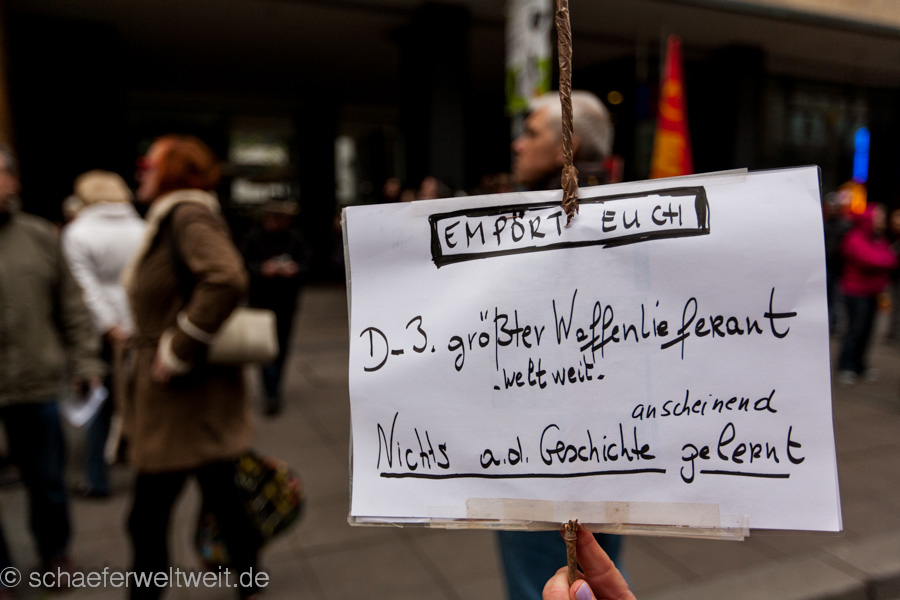 EMPÖRT EUCH
D-3. größter Waffenlieferant
-weltweit-
anscheinend
Nichts a.d. Geschichte gelernt
© schaeferweltweit.de